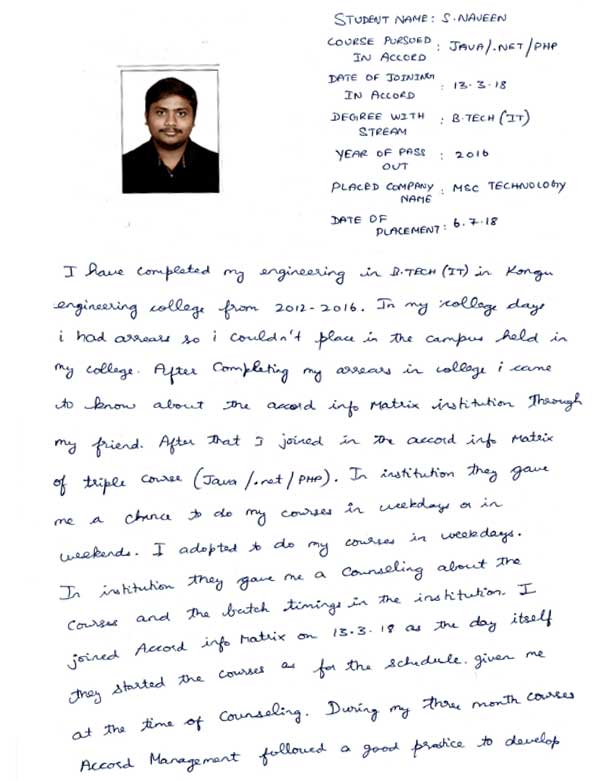 STUDENT NAME: S.NAVEEN
COURSE PURSUED IN ACCORD : JAVA/.NET/PHP
DATE OF JOINING IN ACCORD : 13.3.18
DEGREE WITH STREAM : B.TECH (IT)
YEAR OF PASS OUT : 2016
PLACED COMPANY NAME : MSC TECHNOLOGY
DATE OF PLACEMENT: 6.7.18
I have completed my engineering in B.TECH (IT) in Kongu
engineering college from 2012-2016. In my college days
i had arrears so i couldn't place in the campus held in
my college. After Completing my arrears in college i came
to know about the accord info Matrix institution Through
my friend. After that I joined in the accord info Matrix
of triple course (Java/.net/PHP). In institution they gave
me a chance to do my courses in weekdays or in
weekends. I adopted to do my courses in weekdays.
In institution they gave me a Counseling about the
Courses and the batch timings in the institution. I
joined Accord info Matrix on 13.3.18 as the day itself
they started the courses as for the schedule. given me
at the time of Counseling. During my three month courses
Accord Management followed a good practice to develop